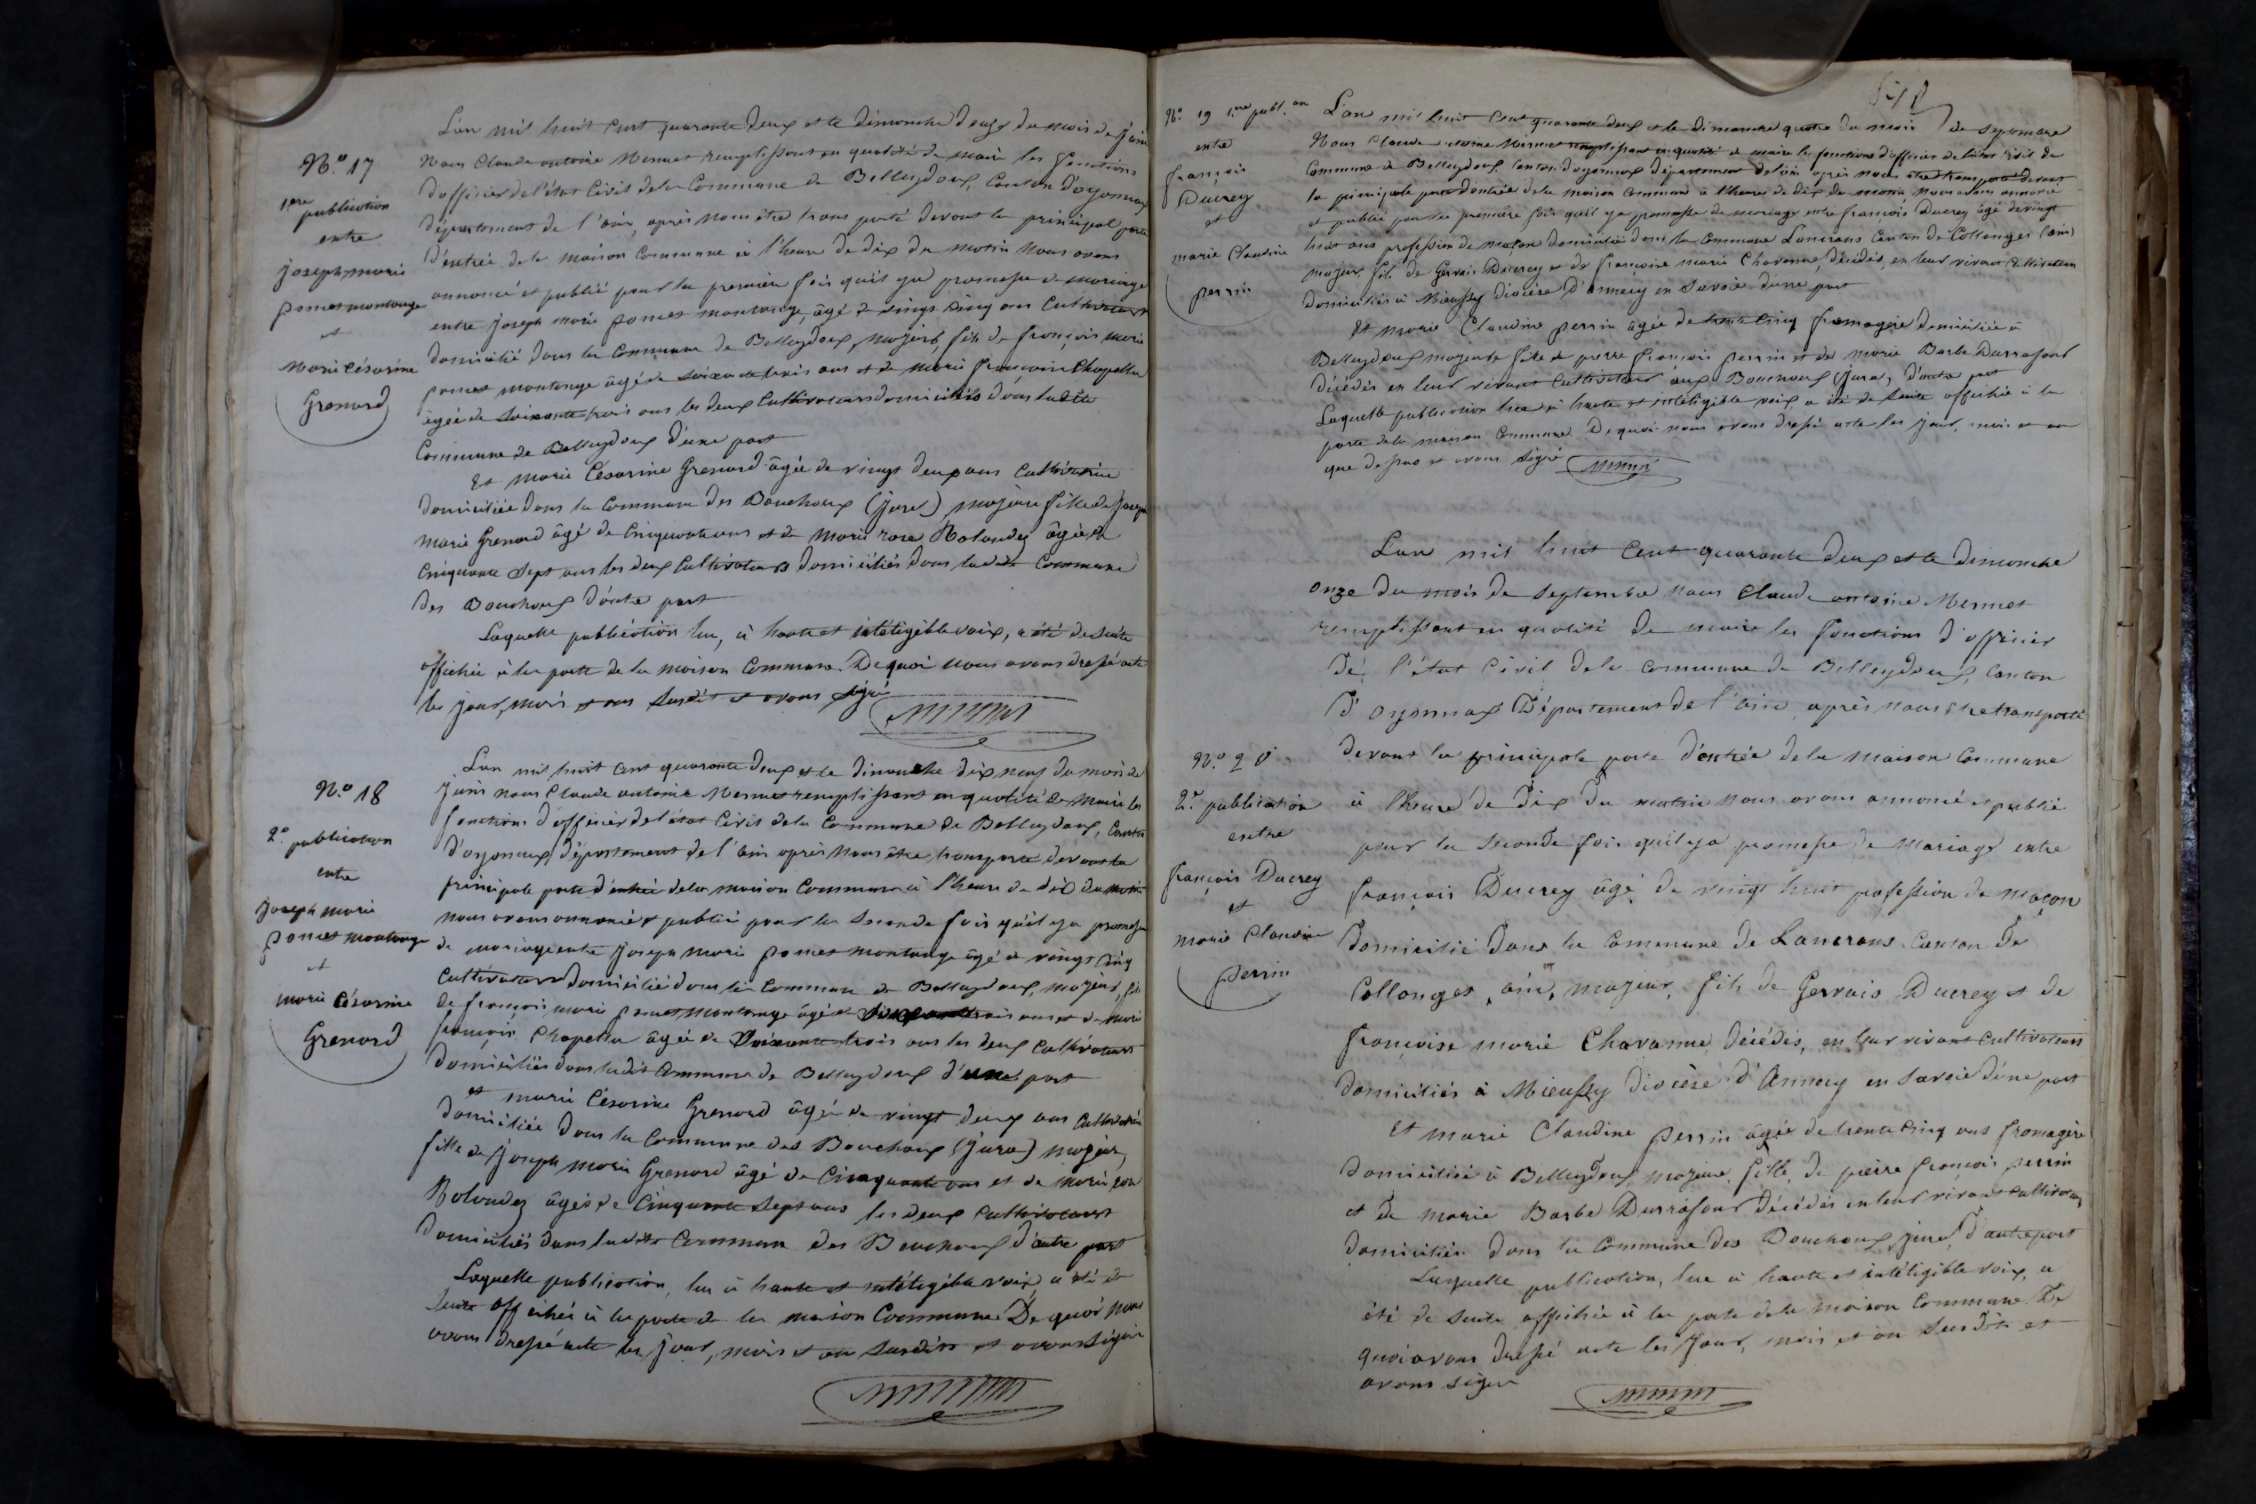 N.o 17
1ère publication
entre
joseph marie
poncet montange
et
Marie Césarine
Grenard
L'an mil huit cent quarante deux et le dimanche douze du mois de juin
Nous Claude antoine Mermet remplissant en qualité de maire les fonctions
d'officier de l'état Civil de la Commune de Belleydoux, Canton d'oyonnax
département de l'ain, après nous être transporté devant la principal porte
d'entrée de la maison Commune à l'heure de dix du matin nous avons
annoncé et publié pour la première fois qu'il ya promesse de mariage
entre joseph marie poncet montange, âgé de vingt cinq ans Cultivateur
domicilié dans la Commune de Belleydoux, majeur, fils de françois marie
poncet montange âgé de soixante trois ans et de marie françoise Chapellu
âgée de soixante trois ans les deux Cultivateurs domiciliés dans ladite
Commune de Belleydoux d'une part
Et marie Césarine Grenard âgée de vingt deux ans Cultivatrice
domiciliée dans la Commune des Bouchoux (jura) majeure fille de joseph
marie Grenard âgé de Cinquante ans et de marie rose Rolandez âgée de
Cinquante sept ans les deux Cultivateurs domiciliés dans ladite Commune
des Bouchoux d'autre part
Laquelle publication lue, à haute et inteligible voix, a été de suite
affichée à la porte de la maison Commune. De quoi nous avons dressé acte
les jour, mois et an susdits et avons signé
N.o 18
2e publication
entre
joseph marie
poncet montange
et
marie Césarine
Grenard
L'an mil huit cent quarante deux et le dimanche dix neuf du mois de
juin nous Claude antoine Mermet remplissant en qualité de Maire les
fonctions d'officier de l'état Civil de la Commune de Belleydoux, Canton
d'oyonnax, département de l'ain après nous être transporté devant la
principale porte d'entrée de la maison Commune à l'heure de dix du matin
nous avons annoncé et publié pour la seconde fois qu'il ya promesse
de mariage entre joseph marie poncet montange âgé de vingt cinq
Cultivateur domicilié dans la Commune de Belleydoux, majeur, fils
de françois marie poncet montange âgé de soixante trois ans et de marie
françoise Chapellu âgée de soixante trois ans les deux Cultivateurs
domiciliés dans ladite Commune de Belleydoux d'une part
et marie Césarine Grenard âgée de vingt deux ans Cultivatrice
domiciliée dans la Commune des Bouchoux (jura) majeure
fille de joseph marie Grenard âgé de Cinquante ans et de marie rose
Rolandez âgée de Cinquante sept ans les deux Cultivateurs
domiciliés dans ladite Commune des Bouchoux d'autre part
Laquelle publication, lue à haute et intéligible voix, a été de
suite affichée à la porte de la maison Commune De quoi nous
avons dressé acte les jour, mois et an susdits et avons signé
N.o 19 1ère publ.on
entre
françois
Ducrey
et
marie Claudine
perrin
L'an mil huit cent quarante deux et le dimanche quatre du mois de septembre
Nous Claude antoine Mermet remplissant en qualité de maire les fonctions d'officier de l'état Civil de
Commune de Belleydoux, Canton d'oyonnax département de l'ain après nous être transporté devant
la principale porte d'entrée de la maison Commune à l'heure de dix du matin nous avons annoncé
et publié pour la première fois qu'il ya promesse de mariage entre françois Ducrey âgé de vingt
huit ans profession de maçon domicilié dans la Commune Lancrans Canton de Collonges (ain)
majeur, fils de Gervais Ducrey et de françoise marie Chavanne, décédés, en leur vivant Cultivateurs
domiciliés à Mieussy diocèse d'annecy en savoie d'une part
Et marie Claudine perrin âgée de trente Cinq fromagère domiciliée à
Belleydoux majeure fille de pierre françois perrin et de marie Barbe Durrafour
décédés en leur vivant Cultivateurs aux Bouchoux (jura) d'autre part
Laquelle publication lue à haute et inteligible voix a été de suite affichée à la
porte de la maison Commune. De quoi nous avons dressé acte les jour, mois et an
que dessus et avons signé
N.o 20
2e publication
entre
françois Ducrey
et
marie Claudine
perrin
L'an mil huit Cent quarante deux et le dimanche
onze du mois de septembre nous Claude antoine Mermet
remplissant en qualité de maire les fonctions d'officier
de l'état Civil de la Commune de Belleydoux, Canton
d'oyonnax Département de l'ain, après nous être transporté
devant la principale porte d'entrée de la maison Commune
à l'heure de dix du matin nous avons annoncé et publié
pour la seconde fois qu'il ya promesse de mariage entre
françois Ducrey âgé de vingt huit profession de maçon
domicilié dans la Commune de Lancrans Canton de
Collonges, ain, majeur, fils de Gervais Ducrey et de
françoise marie Chavanne décédés, en leur vivant Cultivateurs
domiciliés à Mieussy diocèse d'Annecy en savoie d'une part
Et marie Claudine perrin âgée de trente cinq ans fromagère
domiciliée à Belleydoux majeure, fille, de pierre françois perrin
et de marie Barbe Durrafour décédés en leur vivant Cultivateurs
domiciliés dans la Commune des Bouchoux, jura, d'autre part
Laquelle publication, lue à haute et intéligible voix, a
été de suite affichée à la porte de la maison Commune De
quoi avons dressé acte les jour, mois et an susdits et
avons signé